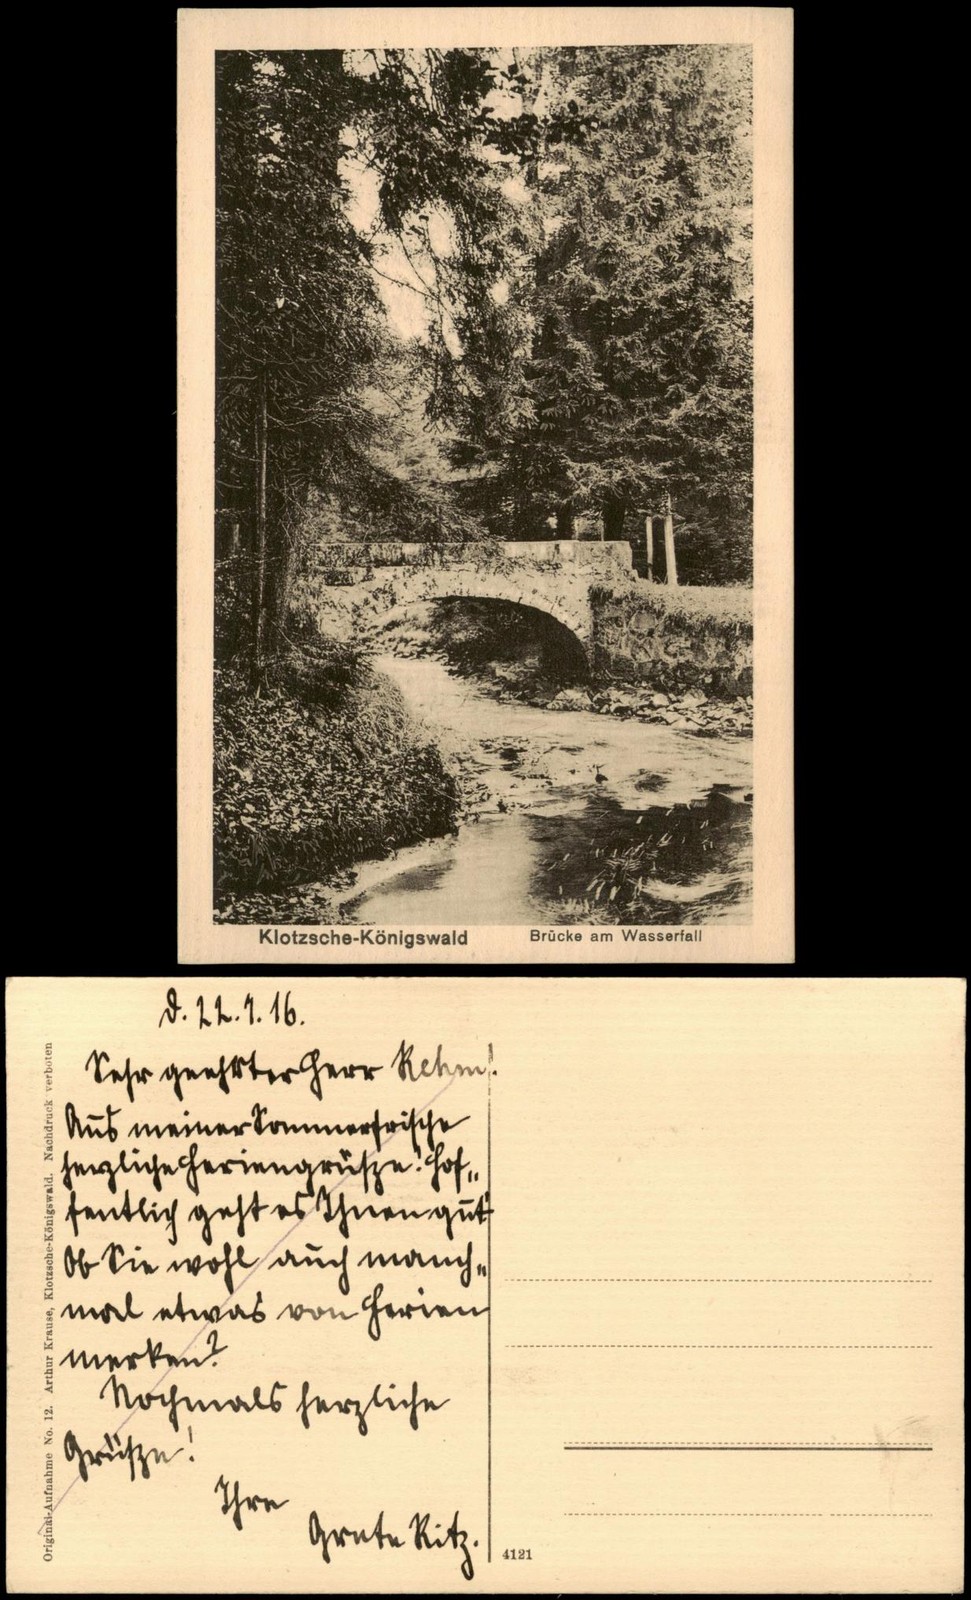 Klotzsche-Königswald Brücke am Wasserfall
d. 22.7.16.
Sehr geehrter Herr Rehm!
Aus meiner Sommerfrische
herzliche Feriengrüsze! Hof„
fentlich geht es Ihnen gut
Ob Sie wohl auch manch„
mal etwas von Ferien
merken?
Nochmals herzliche
Grüsze!
Ihre
Grete Ritz.
Original-Aufnahme No. 12. Arthur Krause, Klotzsche-Königswald. Nachdruck verboten
4121